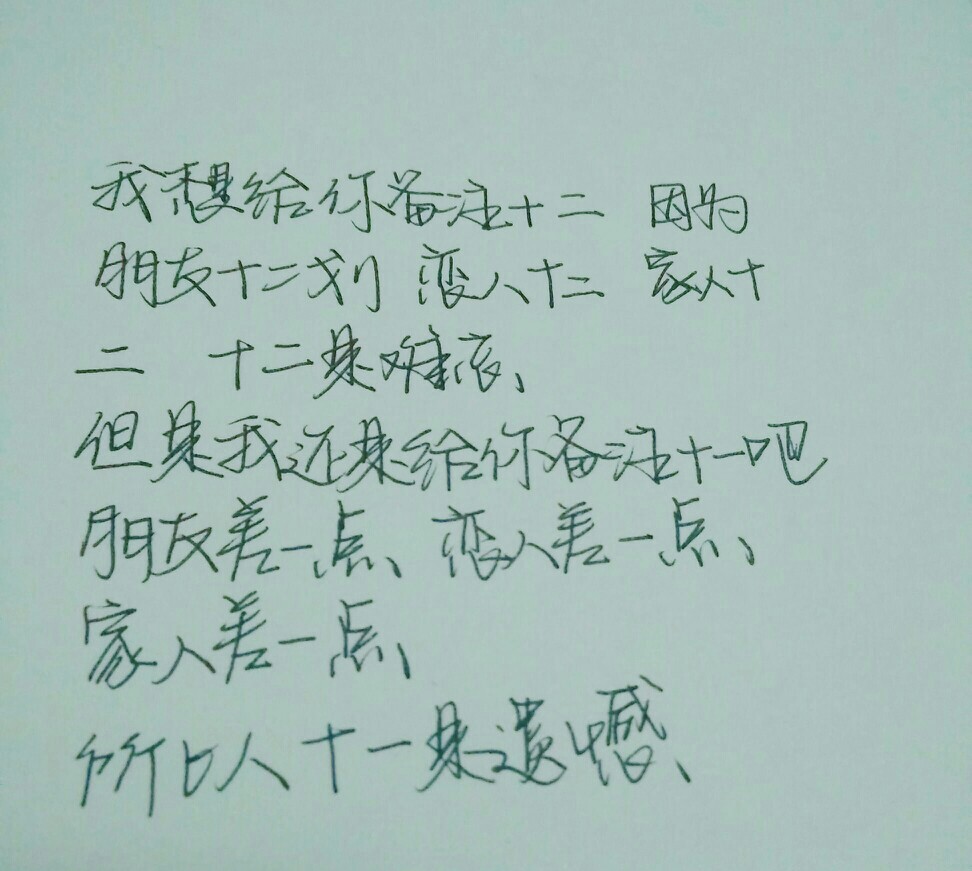 我想给你备注十二 因为
朋友十二划 恋人十二 家人十
二 十二是难滚、
但是我还是给你备注十一吧
朋友差一点、恋人差一点、
家人差一点、
所以人十一是遗憾、